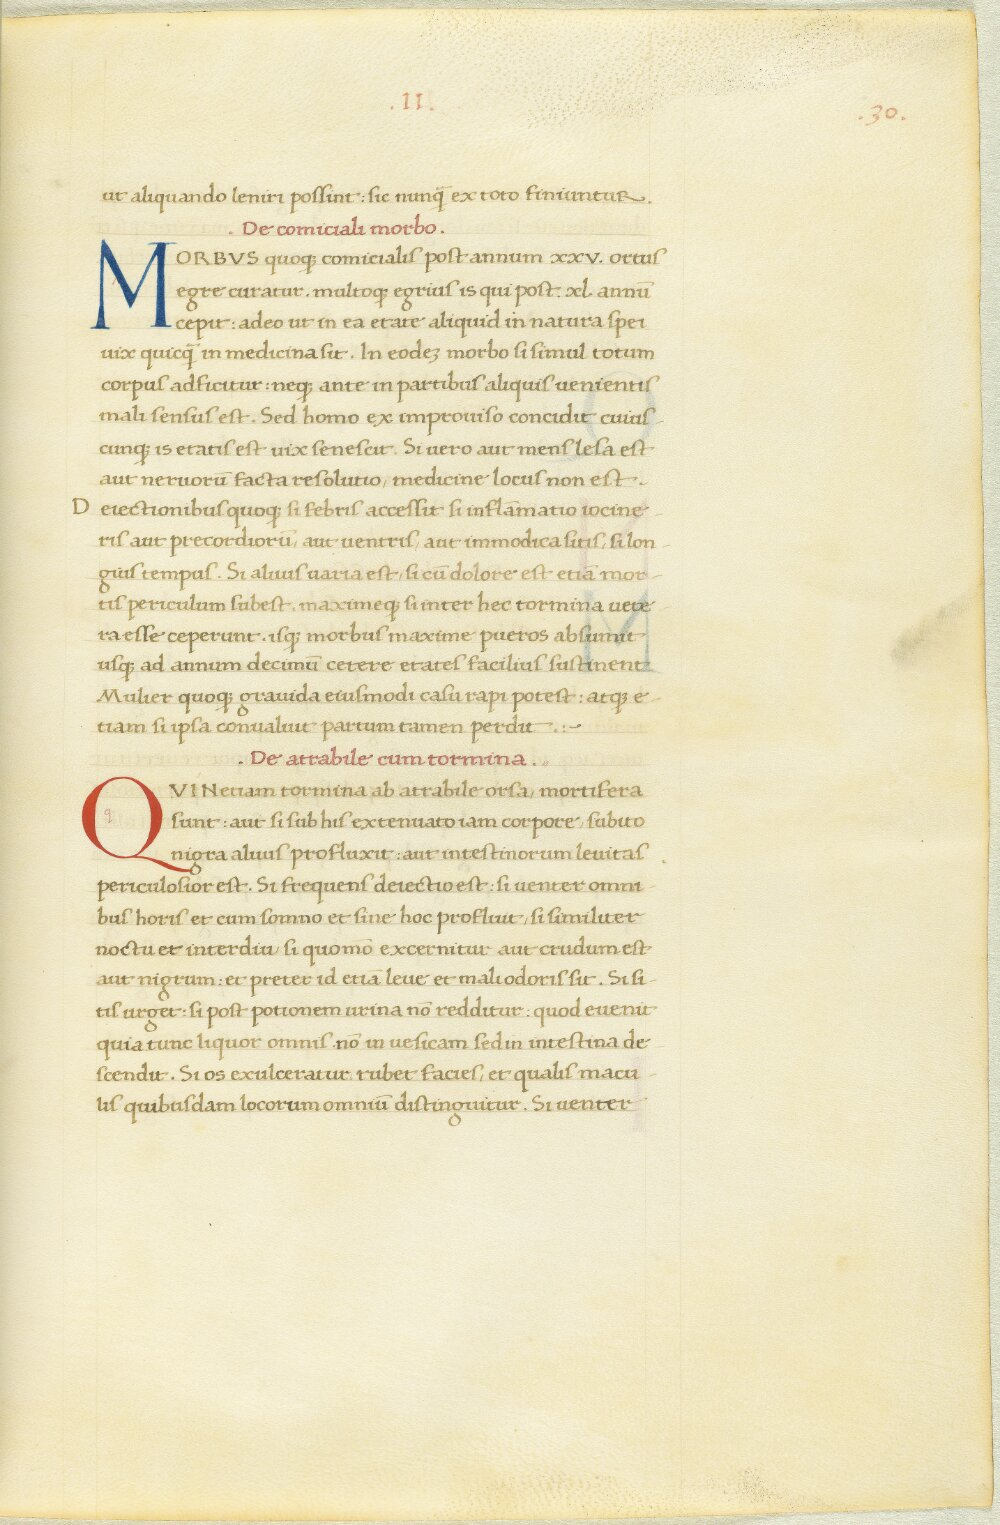 .II.
.30.
ut aliquando leniri possint: sic nunq̄ ex toto finiuntur.
. De comiciali morbo.
MORBVS quoq; comicialis post annum xxv. ortus
egre curatur. multoq; egrius is qui post. xl. annū
cepit: adeo ut in ea etate aliquid in natura spei
uix quicq̄ in medicina sit. In eodeȝ morbo si simul totum
corpus adficitur: neq; ante in partibus aliquis uenientis
mali sensus est. Sed homo ex improuiso concidit cuius-
cunq; is etatis est uix senescit. Si uero aut mens lesa est
aut neruorū facta resolutio/ medicine locus non est.
Deiectionibus quoq; si febris accessit si inflāmatio iocine-
ris aut precordiorū/ aut uentris/ aut immodica sitis/ si lon-
gius tempus. Si aluus uaria est/ si cū dolore est etiā mor-
tis periculum subest. maximeq; si inter hec tormina uete-
ra esse ceperunt. isq; morbus maxime pueros absumit
usq; ad annum decimū cetere etates facilius sustinent
Mulier quoq; grauida eiusmodi casu rapi potest: atq; e-
tiam si ipsa conualuit partum tamen perdit .:~
. De atrabile cum tormina .
q
QVIN etiam tormina ab atrabile orsa/ mortifera
sunt: aut si sub his extenuato iam corpore/ subito
nigra aluus profluxit: aut intestinorum leuitas
periculosior est. Si frequens deiectio est: si uenter omni-
bus horis et cum somno et sine hoc profluit/ si similiter
noctu et interdiu/ si quomō excernitur aut crudum est
aut nigrum: et preter id etiā leue et mali odoris sit. Si si-
tis urget: si post potionem urina nō redditur: quod euenit
quia tunc liquor omnis .nō in uesicam sed in intestina de-
scendit. Si os exulceratur rubet facies/ et qualis macu-
lis quibusdam locorum omniū distinguitur. Si uenter